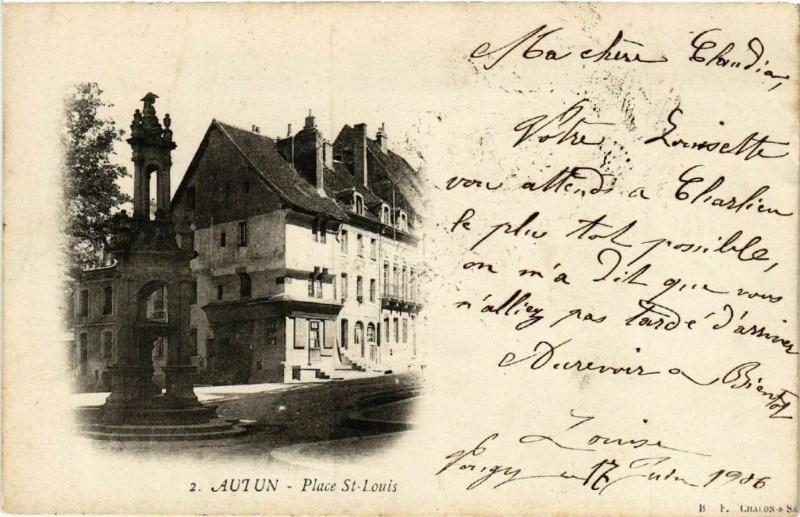 Ma chère Claudia,
Votre Louisette
vou attends a Charlieu
le plus tot possible,
on m'a dit que vous
n'alliez pas tardé d'arriver
Aurevoir a Bientot
Louise
le 17 Juin 1906
2. AUTUN - Place St-Louis
B. F. CHALON-s-SA